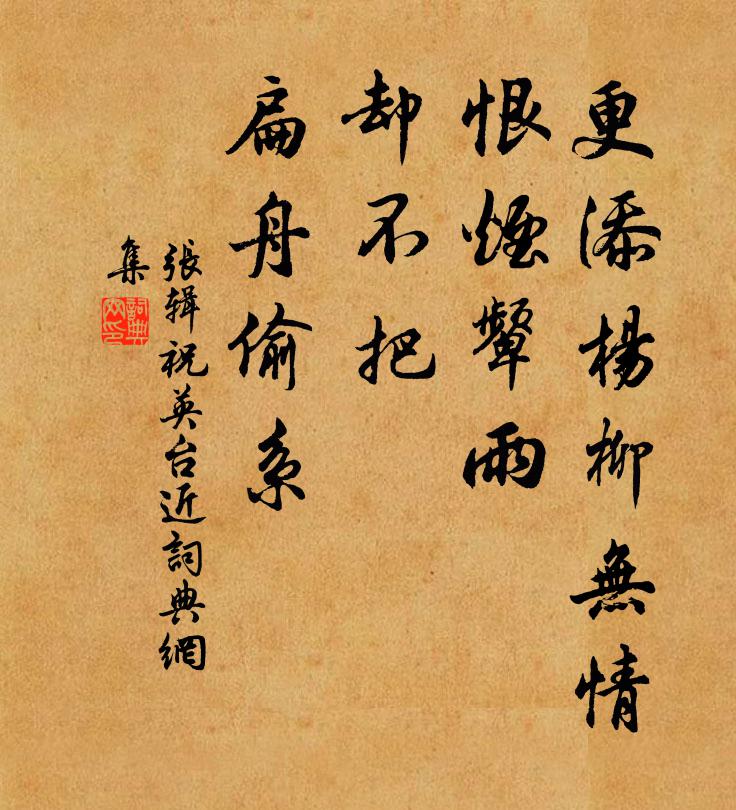 更添楊柳無情
恨煙顰雨
却不把
扁舟偷系
張辑祝英台近詞典網
集
詞典
网印